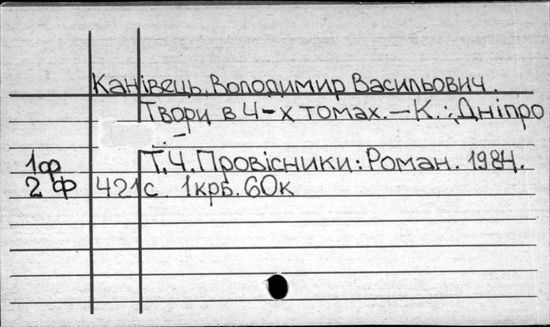 Канівець, Володимир Васильович.
Твори в 4-х томах. — К.: Дніпро
. -
1ф Т.4. Провісники: Роман. 1984.
2 ф 421с 1крб. 60к